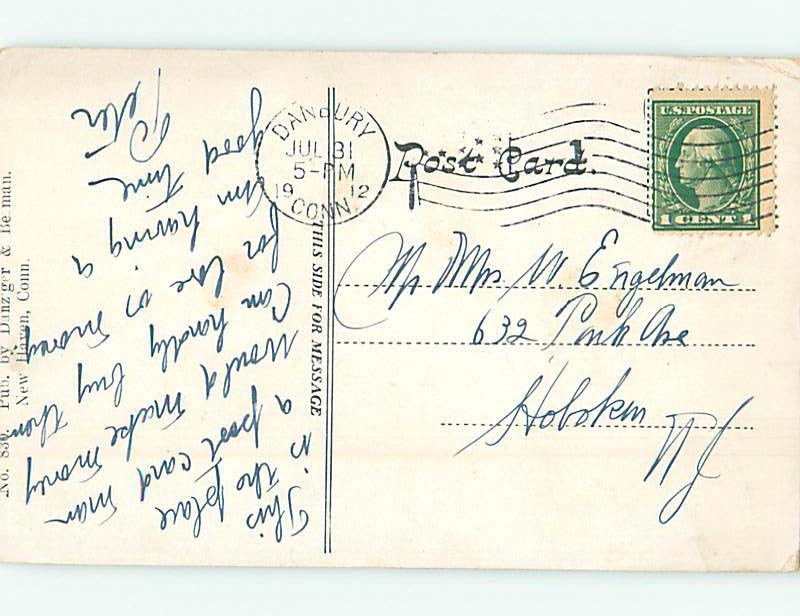 DANBURY
JUL 31
5-PM
19 12
CONN.
Post Card.
U.S. POSTAGE
1 CENT 1
THIS SIDE FOR MESSAGE
No. 830. Pub. by Danziger & Berman.
New Haven, Conn.
This is the place
a post card man
would make money
Can hardly buy them
for love or money
Am having a
good time
Peter
Mr & Mrs W. Engelman
632 Park Ave
Hoboken
NJ